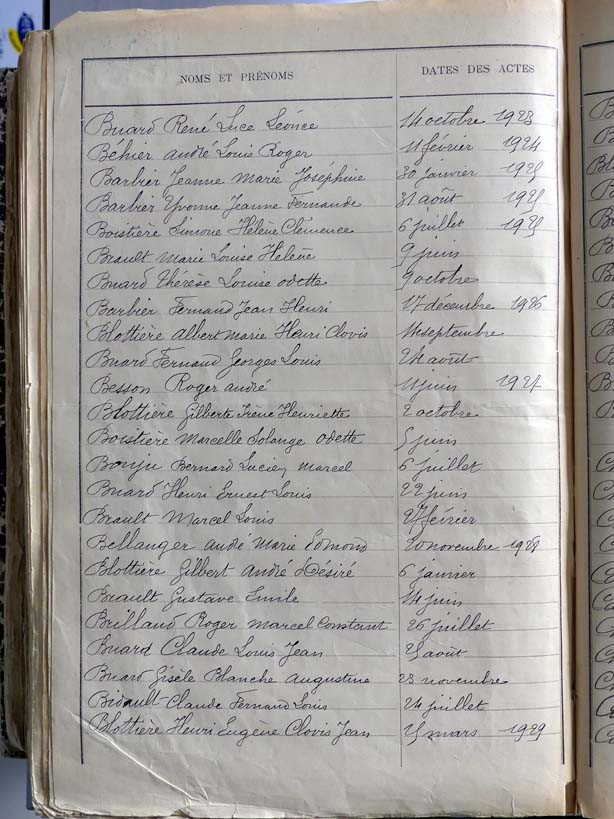 NOMS ET PRÉNOMS DATES DES ACTES
Buard René Luce Léonce 14 octobre 1923
Béhier André Louis Roger 11 février 1924
Barbier Jeanne Marie Joséphine 30 janvier 1925
Barbier Yvonne Jeanne Fernande 31 août 1925
Boistière Simone Hélène Clémence 6 juillet 1925
Brault Marie Louise Helène 9 juin
Buard Thérèse Louise Odette 9 octobre
Barbier Fernand Jean Henri 17 décembre 1926
Blottière Albert Marie Henri Clovis septembre
Buard Fernand Georges Louis 24 août
Besson Roger André 11 juin 1927
Blottière Gilberte Irène Henriette 2 octobre
Boistière Marcelle Solange Odette 5 juin
Bouju Bernard Lucien Marcel 6 juillet
Buard Henri Ernest Louis 22 juin
Brault Marcel Louis 27 février
Bellanger André Marie Edmond 20 novembre 1928
Blottière Gilbert André Désiré 6 janvier
Brault Gustave Emile 14 juin
Brilland Roger Marcel Constant 26 juillet
Buard Claude Louis Jean 25 août
Buard Gisèle Blanche Augustine 28 novembre
Bidault Claude Fernand Louis 24 juillet
Blottière Henri Eugène Clovis Jean 25 mars 1929